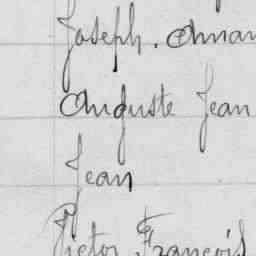 Joseph. Aman
Auguste Jean
Jean
Victor François